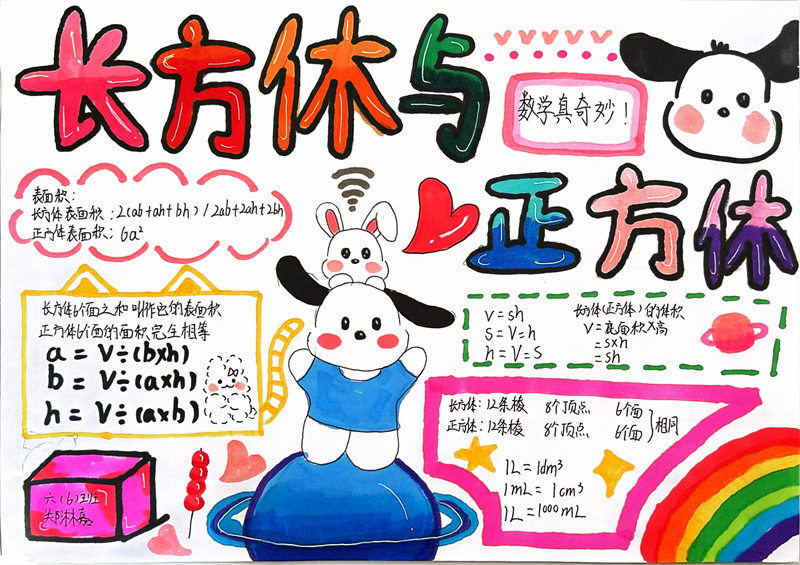 长方休与
数学真奇妙！
正方休
表面积：
长方体表面积：2(ab+ah+bh) / 2ab+2ah+2bh
正方体表面积：6a²
长方体6个面之和叫作它的表面积
正方体6个面的面积完全相等
a = V÷(b×h)
b = V÷(a×h)
h = V÷(a×b)
V = sh
S = V÷h
h = V÷S
长方体(正方体)的体积
V = 底面积×高
= s×h
= sh
长方体：12条棱 8个顶点 6个面
正方体：12条棱 8个顶点 6个面
相同
1L = 1dm³
1mL = 1cm³
1L = 1000mL
六(6)班
郑林嘉